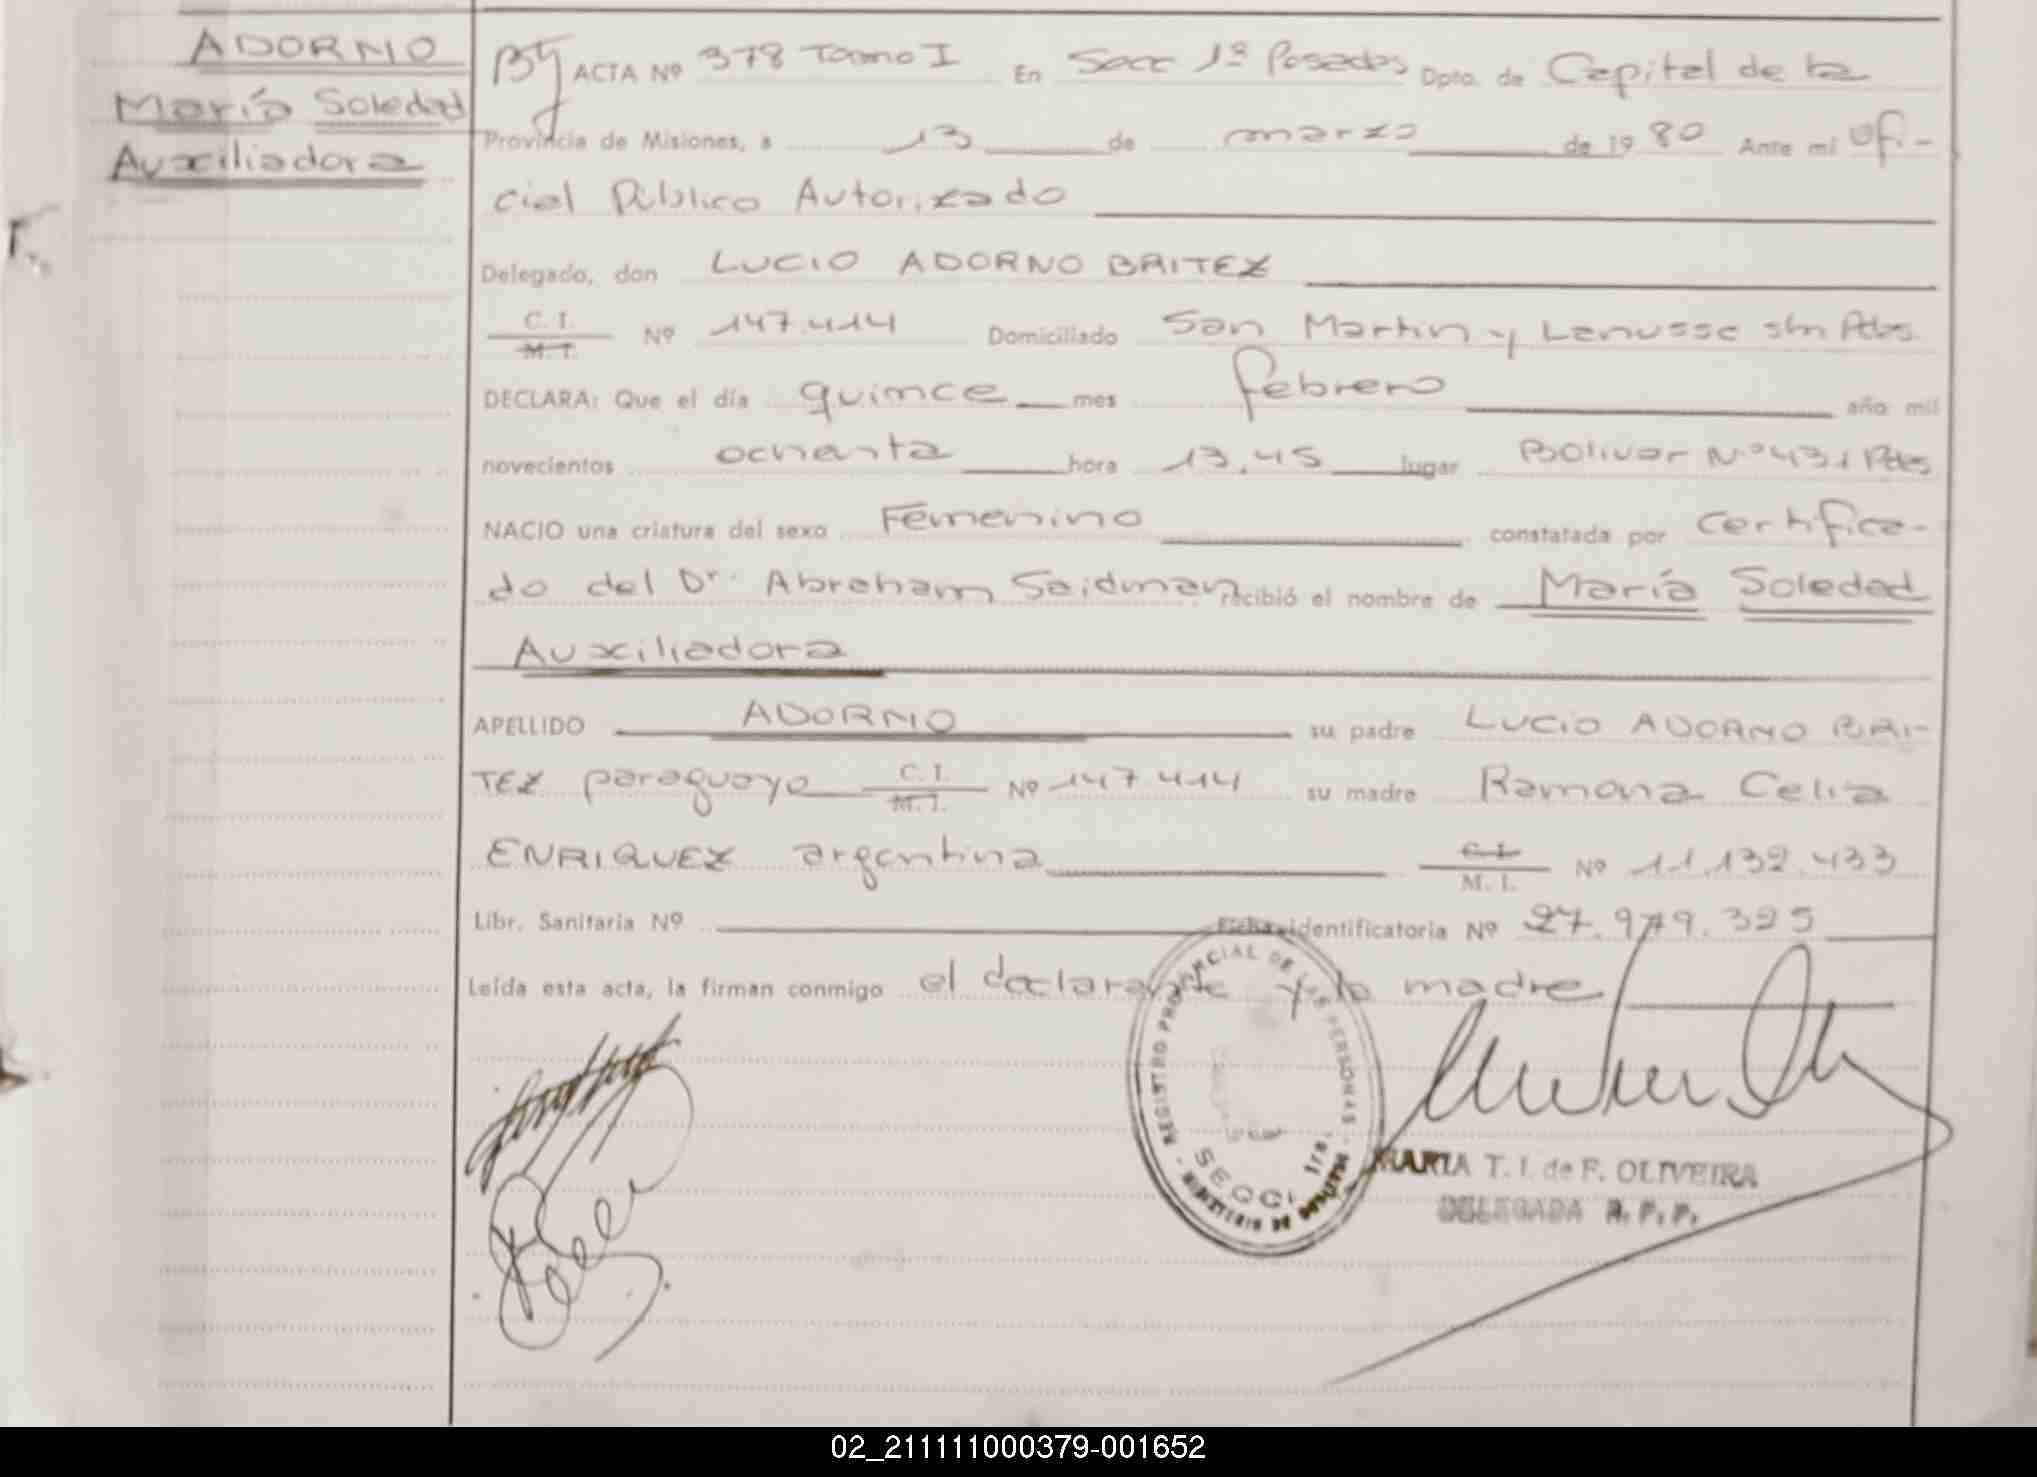 ADORNO
María Soledad
Auxiliadora
ACTA Nº 378 Tomo I En Secc 1ª Posadas Dpto. de Capital de la
Provincia de Misiones, a 13 de marzo de 1980 Ante mi Ofi-
cial Público Autorizado
Delegado, don LUCIO ADORNO BRITEZ
C. I.
M. I. Nº 147.414 Domiciliado San Martin y Lanusse s/n Pdas.
DECLARA: Que el día quince mes febrero año mil
novecientos ochenta hora 13,45 lugar Bolivar Nº 431 Pdas
NACIO una criatura del sexo Femenino constatada por certifica-
do del Dr. Abraham Saidman recibió el nombre de María Soledad
Auxiliadora
APELLIDO ADORNO su padre LUCIO ADORNO BRI-
TEZ paraguayo C. I. M. I. Nº 147.414 su madre Ramona Celia
ENRIQUEZ argentina C. I. M. I. Nº 11.132.433
Libr. Sanitaria Nº Ficha identificatoria Nº 27.979.325
Leída esta acta, la firman conmigo el declarante y la madre
REGISTRO PROVINCIAL DE LAS PERSONAS
MARIA T. I. de F. OLIVEIRA
DELEGADA R. P. P.
02_211111000379-001652